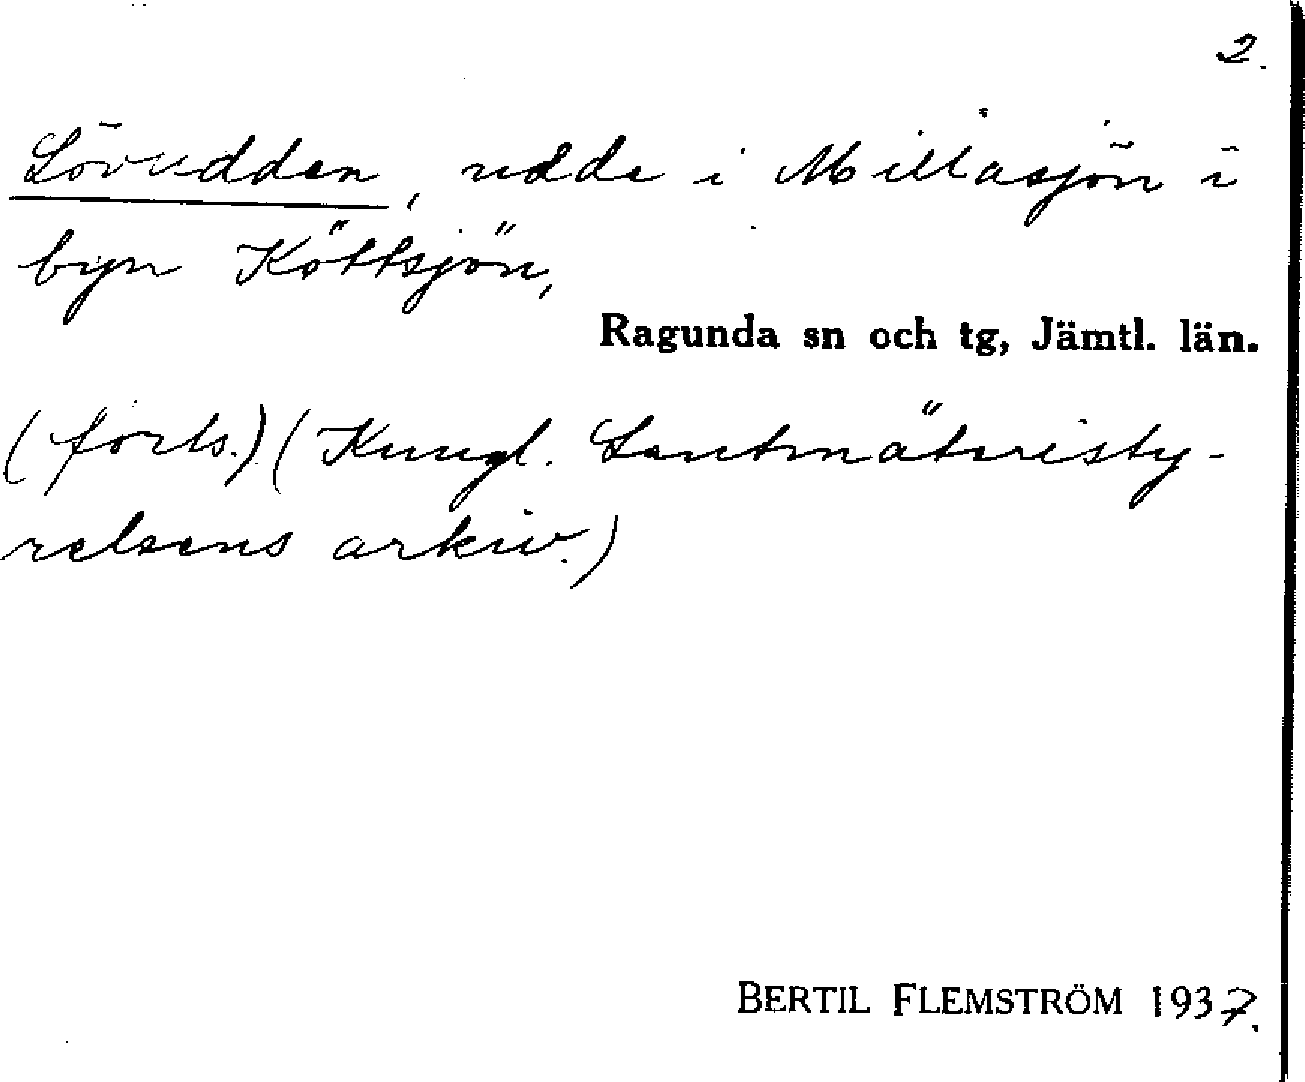 2.
Lövudden, udde i Millåsjön i
byn Köttsjön,
Ragunda sn och tg, Jämtl. län.
(forts.) (Kungl. Lantmäteristy-
relsens arkiv.)
BERTIL FLEMSTRÖM 1937.